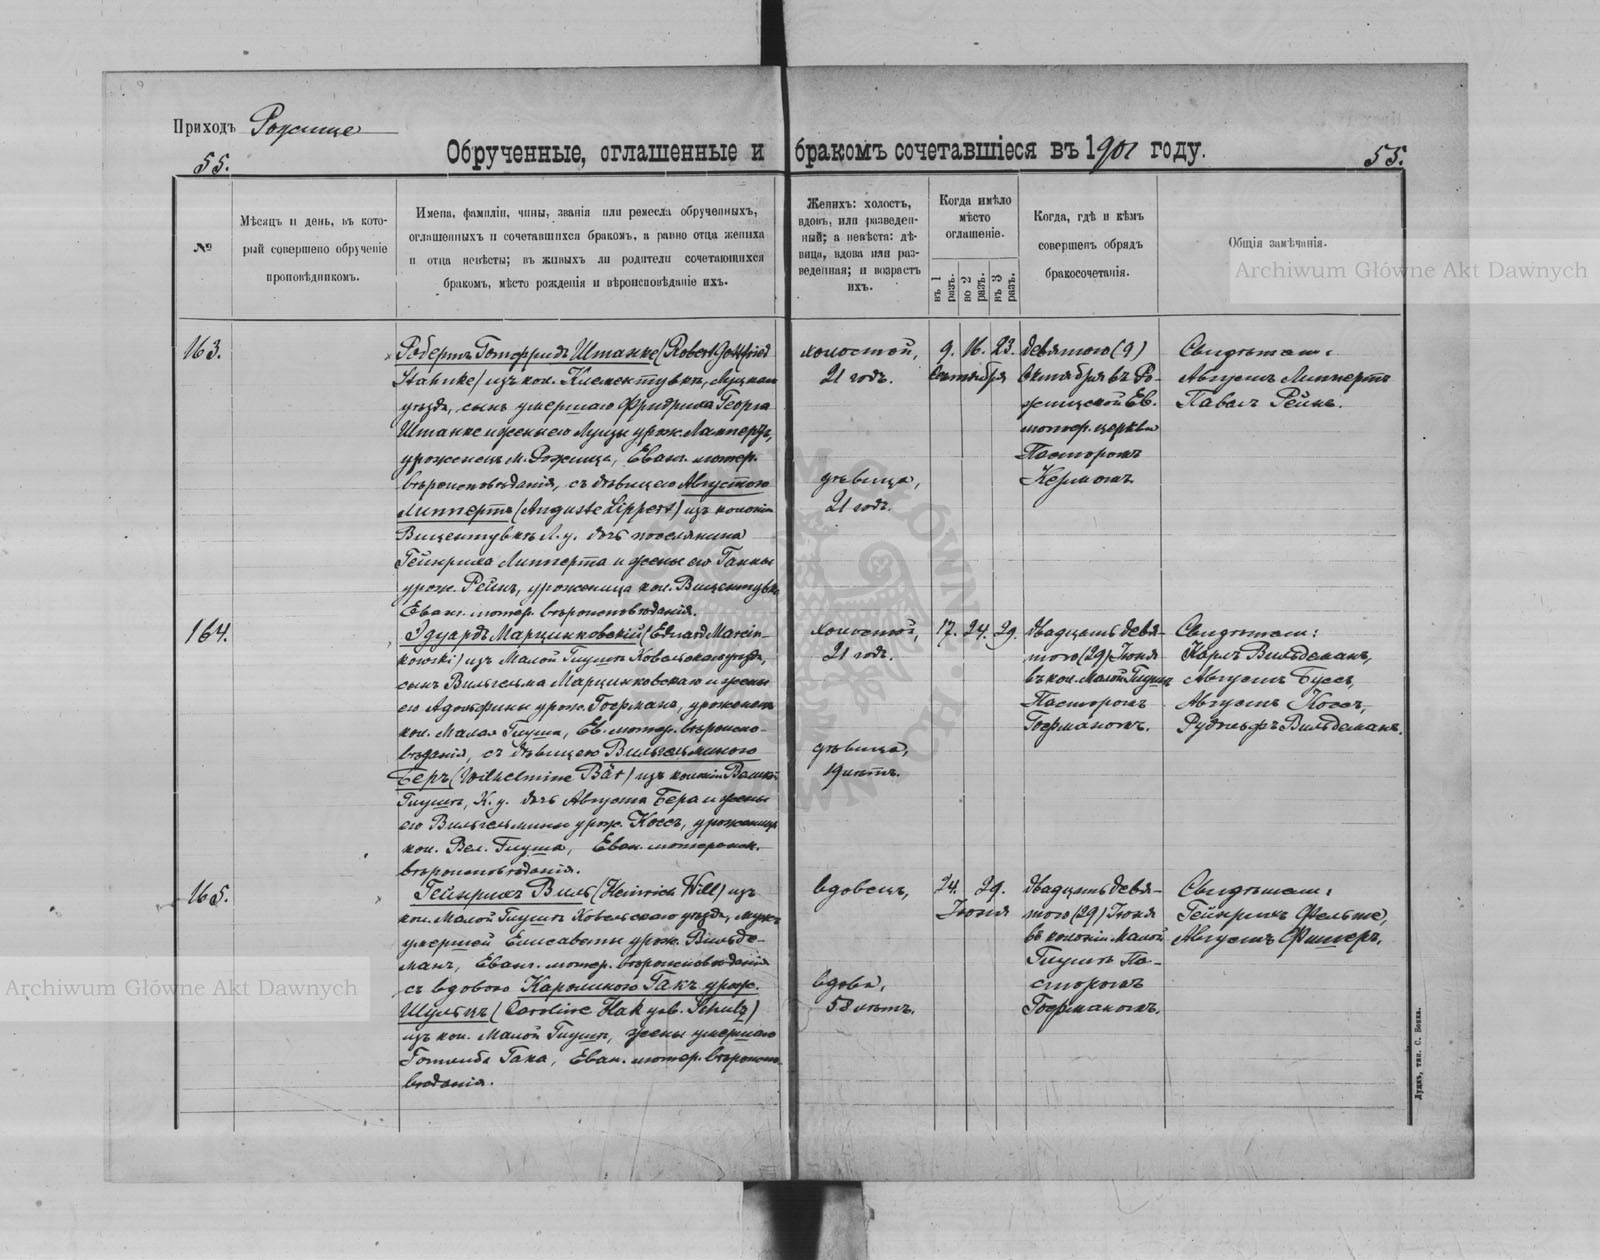 Приходъ Рожище
55.
Обрученные, оглашенные и бракомъ сочетавшіеся въ 1901 году.
55.
№
Мѣсяцъ и день, въ кото-
рый совершено обрученіе
проповѣдникомъ.
Имена, фамиліи, чины, званія или ремесла обрученныхъ,
оглашенныхъ и сочетавшихся бракомъ, а равно отца жениха
и отца невѣсты; въ живыхъ ли родители сочетающихся
бракомъ, мѣсто рожденія и вѣроисповѣданіе ихъ.
Женихъ: холостъ,
вдовъ, или разведен-
ный; а невѣста: дѣ-
вица, вдова или раз-
веденная; и возрастъ
ихъ.
Когда имѣло
мѣсто
оглашеніе.
въ 1 разъ.
во 2 разъ.
въ 3 разъ.
Когда, гдѣ и кѣмъ
совершенъ обрядъ
бракосочетанія.
Общія замѣчанія.
163.
Робертъ Готфридъ Штанке (Robert Gottfried
Stahnke) изъ кол. Клементувки, Луцкаго
уѣзда, сынъ умершаго Фридриха Георга
Штанке и жены его Луизы урож. Лампертъ,
уроженецъ м. Рожища, Еван. лютер.
вѣроисповѣданія, съ дѣвицею Августою
Липпертъ (Auguste Lippert) изъ колоніи
Вицентувки Л. у. дочь поселянина
Гейнриха Липперта и жены его Ганны
урож. Рейнъ, уроженица кол. Вицентувки
Еван. лютер. вѣроисповѣданія.
холостой,
21 годъ.
дѣвица,
21 годъ.
9. 16. 23.
Сентября
девятого (9)
Октября въ Ро-
жищской Ев.
лютер. церкви
Пасторомъ
Кермомъ
Свидѣтели:
Августъ Липпертъ
Павелъ Рейнъ.
164.
Эдуардъ Марцинковскій (Eduard Marcin-
kowski) изъ Малой Глуши Ковельскаго уѣзда,
сынъ Вильгельма Марцинковскаго и жены
его Адольфины урож. Гофманъ, уроженецъ
кол. Малая Глуша, Ев. лютер. вѣроиспо-
вѣданія, съ дѣвицею Вильгельминою
Беръ (Wilhelmine Bär) изъ колоніи Велик.
Глуши, К. у. дочь Августа Бера и жены
его Вильгельмины урож. Коссъ, уроженица
кол. Вел. Глуша, Еван. лютеранск.
вѣроисповѣданія.
холостой,
21 годъ.
дѣвица,
19 лѣтъ.
17. 24. 29.
двадцать девя-
того (29) Іюня
въ кол. Малой Глуши
Пасторомъ
Гофманомъ.
Свидѣтели:
Карлъ Вильдеманъ,
Августъ Буссъ,
Августъ Коссъ,
Рудольфъ Вильдеманъ.
165.
Гейнрихъ Вилль (Heinrich Will) изъ
кол. Малой Глуши Ковельскаго уѣзда, мужъ
умершей Елисаветы урож. Вильде-
манъ, Еван. лютер. вѣроисповѣданія
съ вдовою Каролиною Гакъ урож.
Шульцъ (Caroline Hak geb. Schulz)
изъ кол. Малой Глуши, жены умершаго
Готлиба Гака, Еван. лютер. вѣроиспо-
вѣданія.
вдовецъ,
вдова,
58 лѣтъ.
24. 29.
Іюня
двадцать девя-
того (29) Іюня
въ колоніи Малой
Глуши Па-
сторомъ
Гофманомъ.
Свидѣтели:
Гейнрихъ Фельске,
Августъ Фишеръ.
Луцкъ, тип. С. Бонка.
Archiwum Główne Akt Dawnych
Archiwum Główne Akt Dawnych